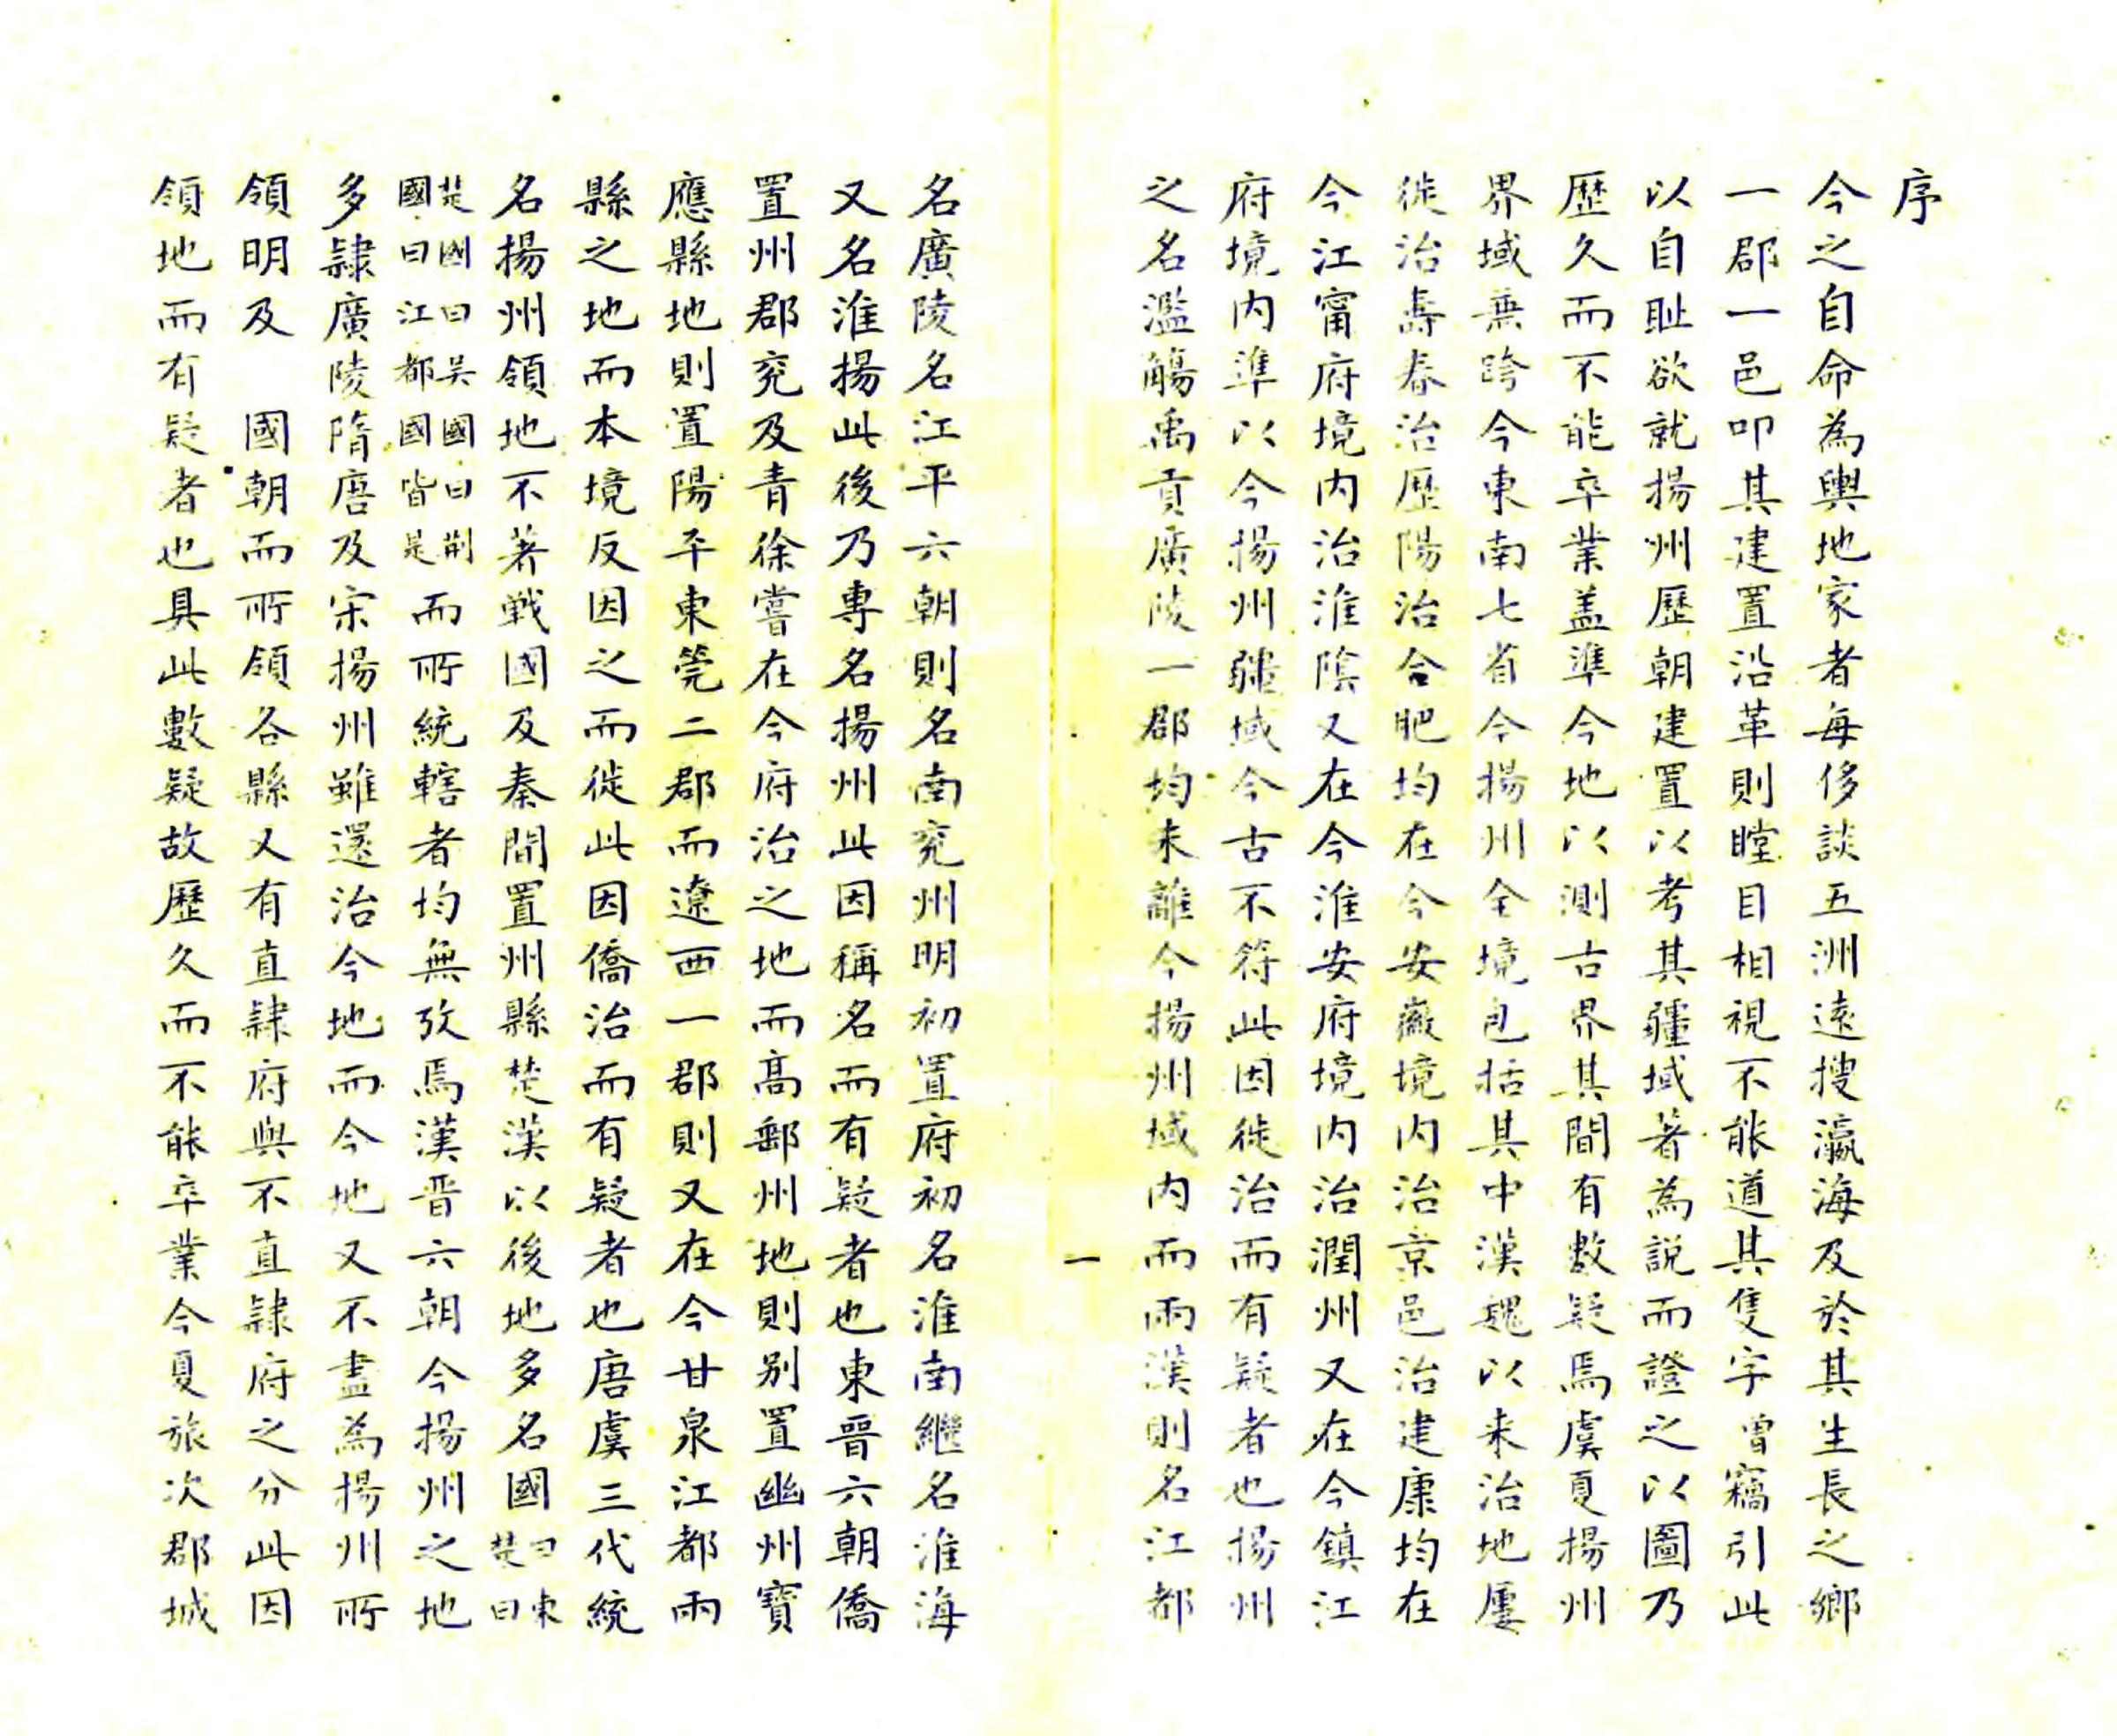 序
今之自命為輿地家者每侈談五洲遠搜瀛海及於其生長之鄉
一郡一邑叩其建置沿革則瞠目相視不能道其隻字曾竊引此
以自耻欲就揚州歷朝建置以考其疆域著為說而證之以圖乃
歷久而不能卒業盖準今地以測古界其間有數疑焉虞夏揚州
界域兼跨今東南七省今揚州全境包括其中漢魏以来治地屢
徙治壽春治歷陽治合肥均在今安徽境内治京邑治建康均在
今江甯府境内治淮陰又在今淮安府境内治潤州又在今鎮江
府境内準以今揚州疆域今古不符此因徙治而有疑者也揚州
之名濫觴禹貢廣陵一郡均未離今揚州域内而兩漢則名江都
一
名廣陵名江平六朝則名南兖州明初置府初名淮南繼名淮海
又名淮揚此後乃專名揚州此因稱名而有疑者也東晉六朝僑
置州郡兖及青徐嘗在今府治之地而高郵州地則别置幽州寶
應縣地則置陽平東莞二郡而遼西一郡則又在今甘泉江都兩
縣之地而本境反因之而徙此因僑治而有疑者也唐虞三代統
名揚州領地不著戰國及秦間置州縣楚漢以後地多名國曰東楚曰
楚國曰吴國曰荆國曰江都國皆是而所統轄者均無攷焉漢晋六朝今揚州之地
多隷廣陵隋唐及宋揚州雖還治今地而今地又不盡為揚州所
領明及 國朝而所領各縣又有直隷府與不直隷府之分此因
領地而有疑者也具此數疑故歷久而不能卒業今夏旅次郡城